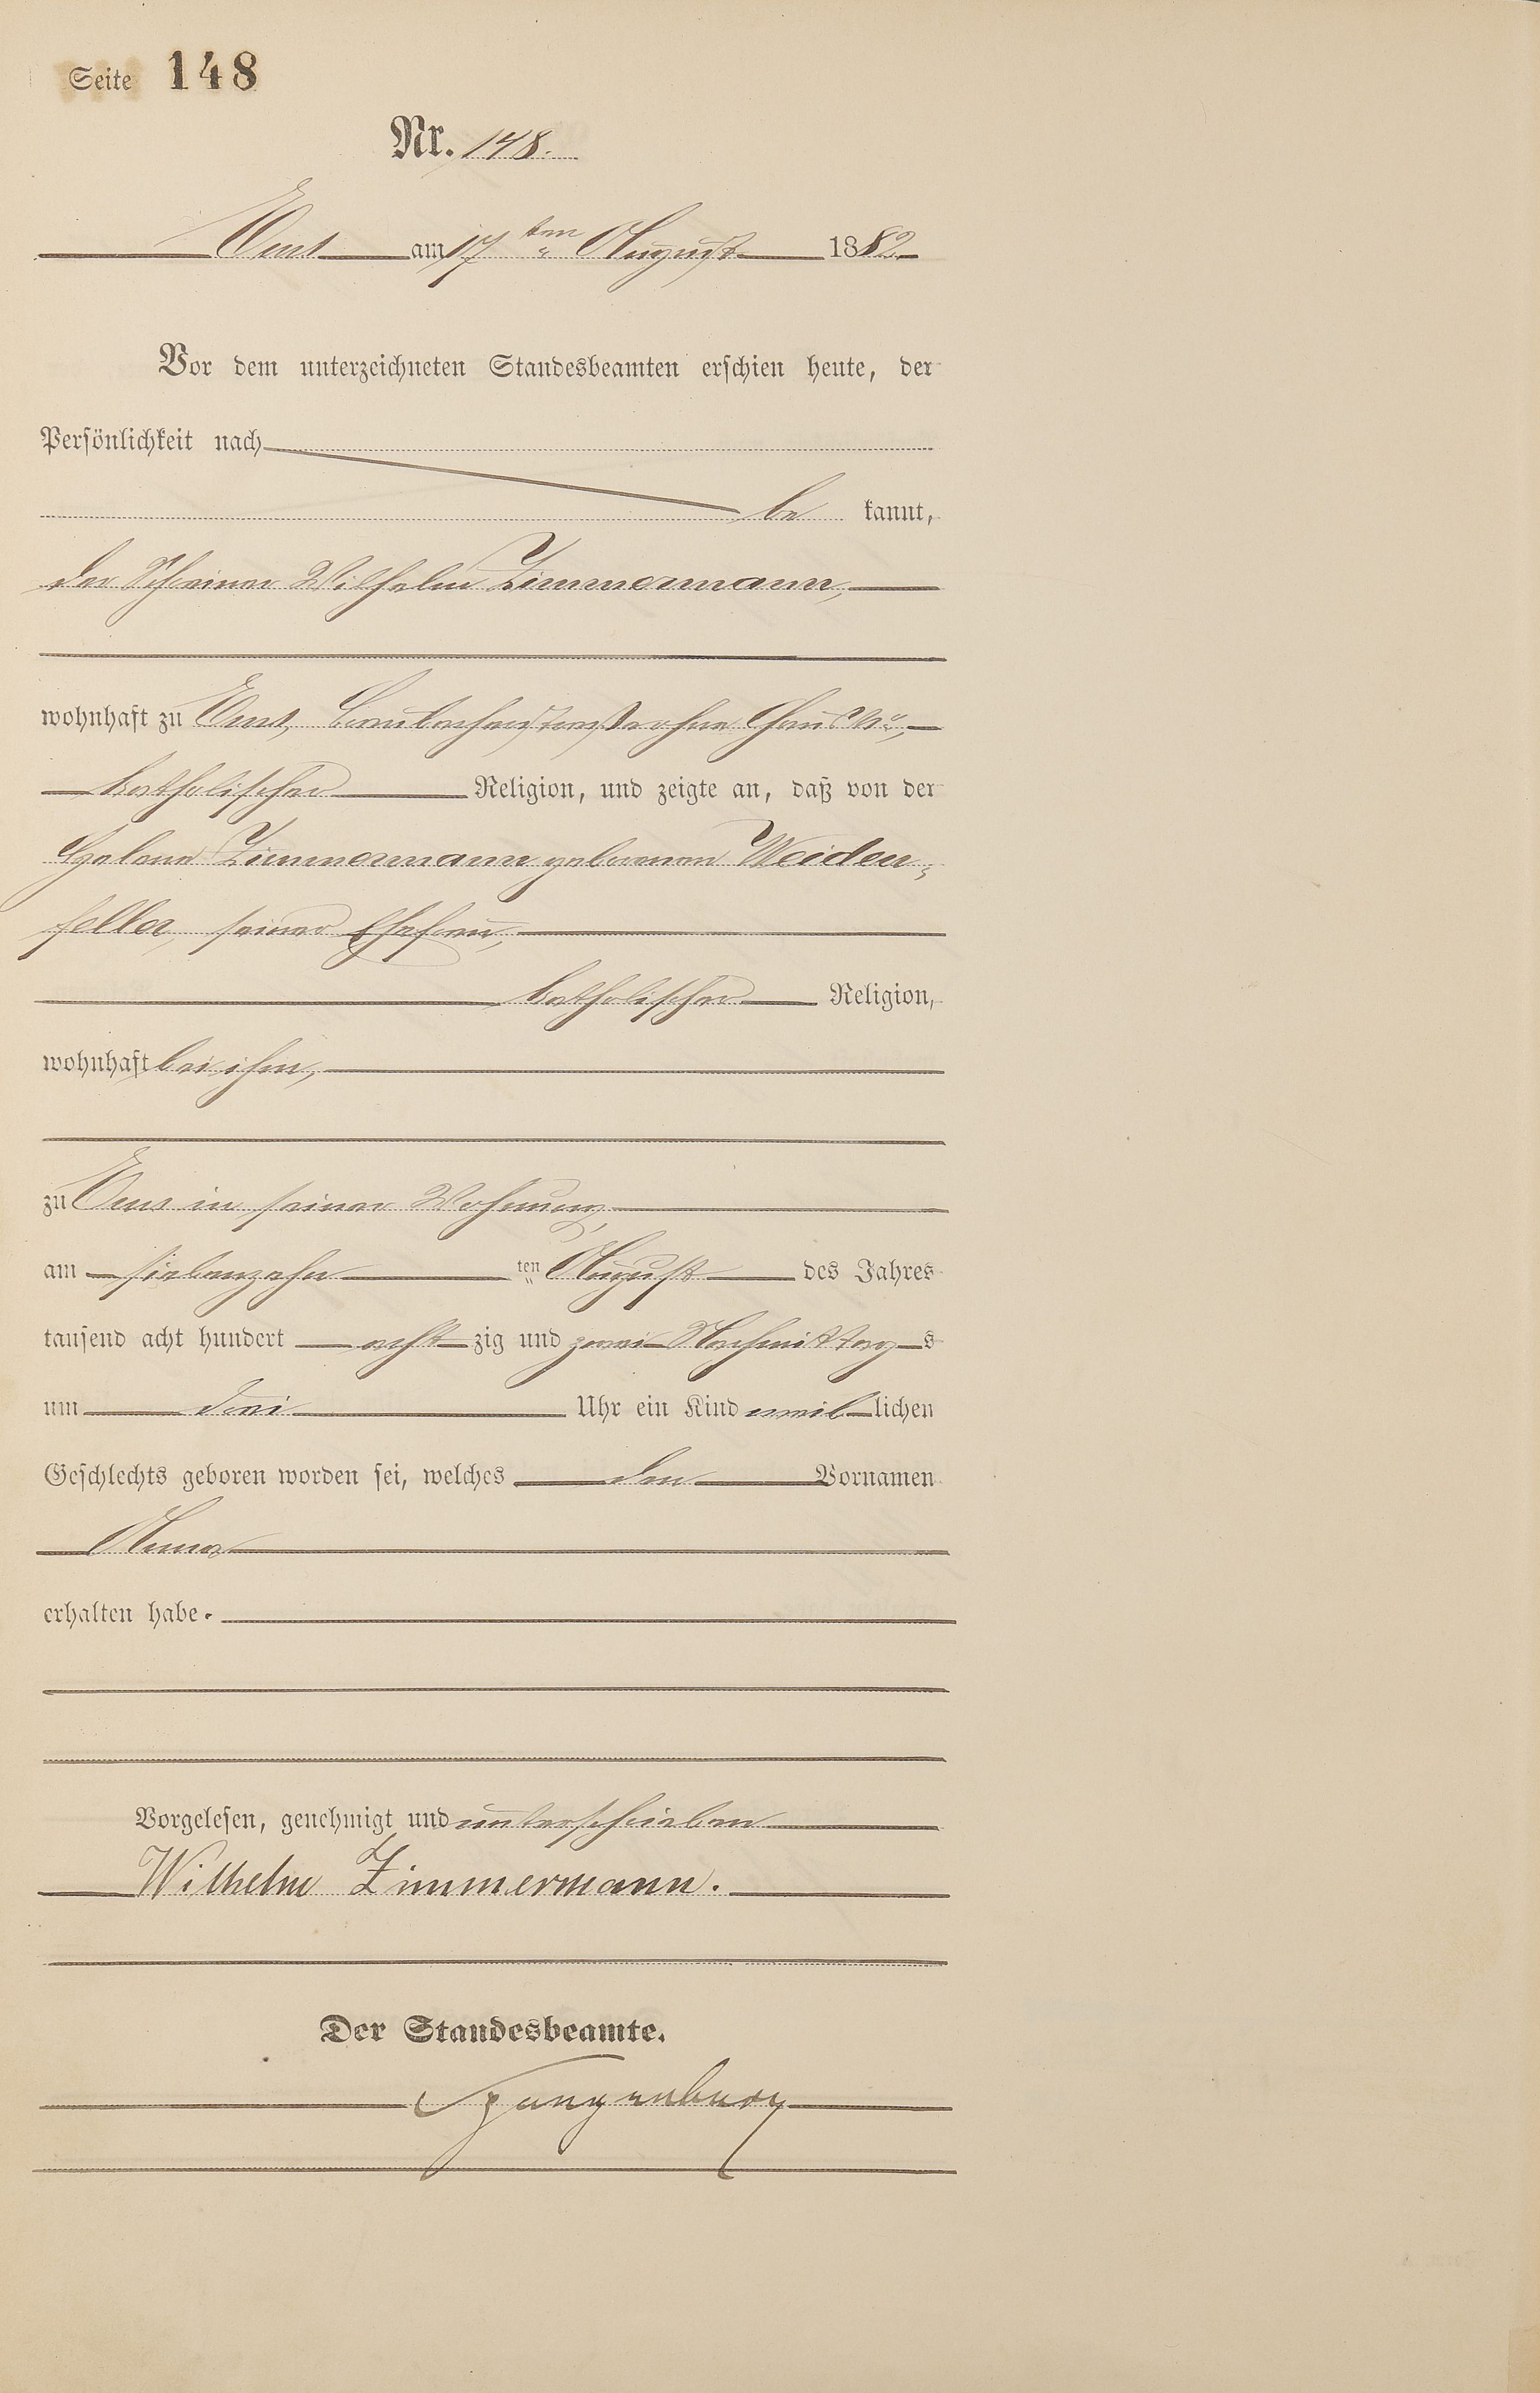 Seite 148
Nr. 148.
Ems am 17ten August 1882
Vor dem unterzeichneten Standesbeamten erschien heute, der
Persönlichkeit nach
be kannt,
der Schreiner Wilhelm Zimmermann,
wohnhaft zu Ems, ohne Haus No,
katholischer Religion, und zeigte an, daß von der
Helene Zimmermann geborenen Weiden-
feller, seiner Ehefrau,
katholischer Religion,
wohnhaft bei ihm,
zu Ems in seiner Wohnung
am siebenzehn ten August des Jahres
tausend acht hundert acht zig und zwei Nachmittag s
um drei Uhr ein Kind weib lichen
Geschlechts geboren worden sei, welches den Vornamen
Anna
erhalten habe.
Vorgelesen, genehmigt und unterschrieben
Wilhelm Zimmermann.
Der Standesbeamte.